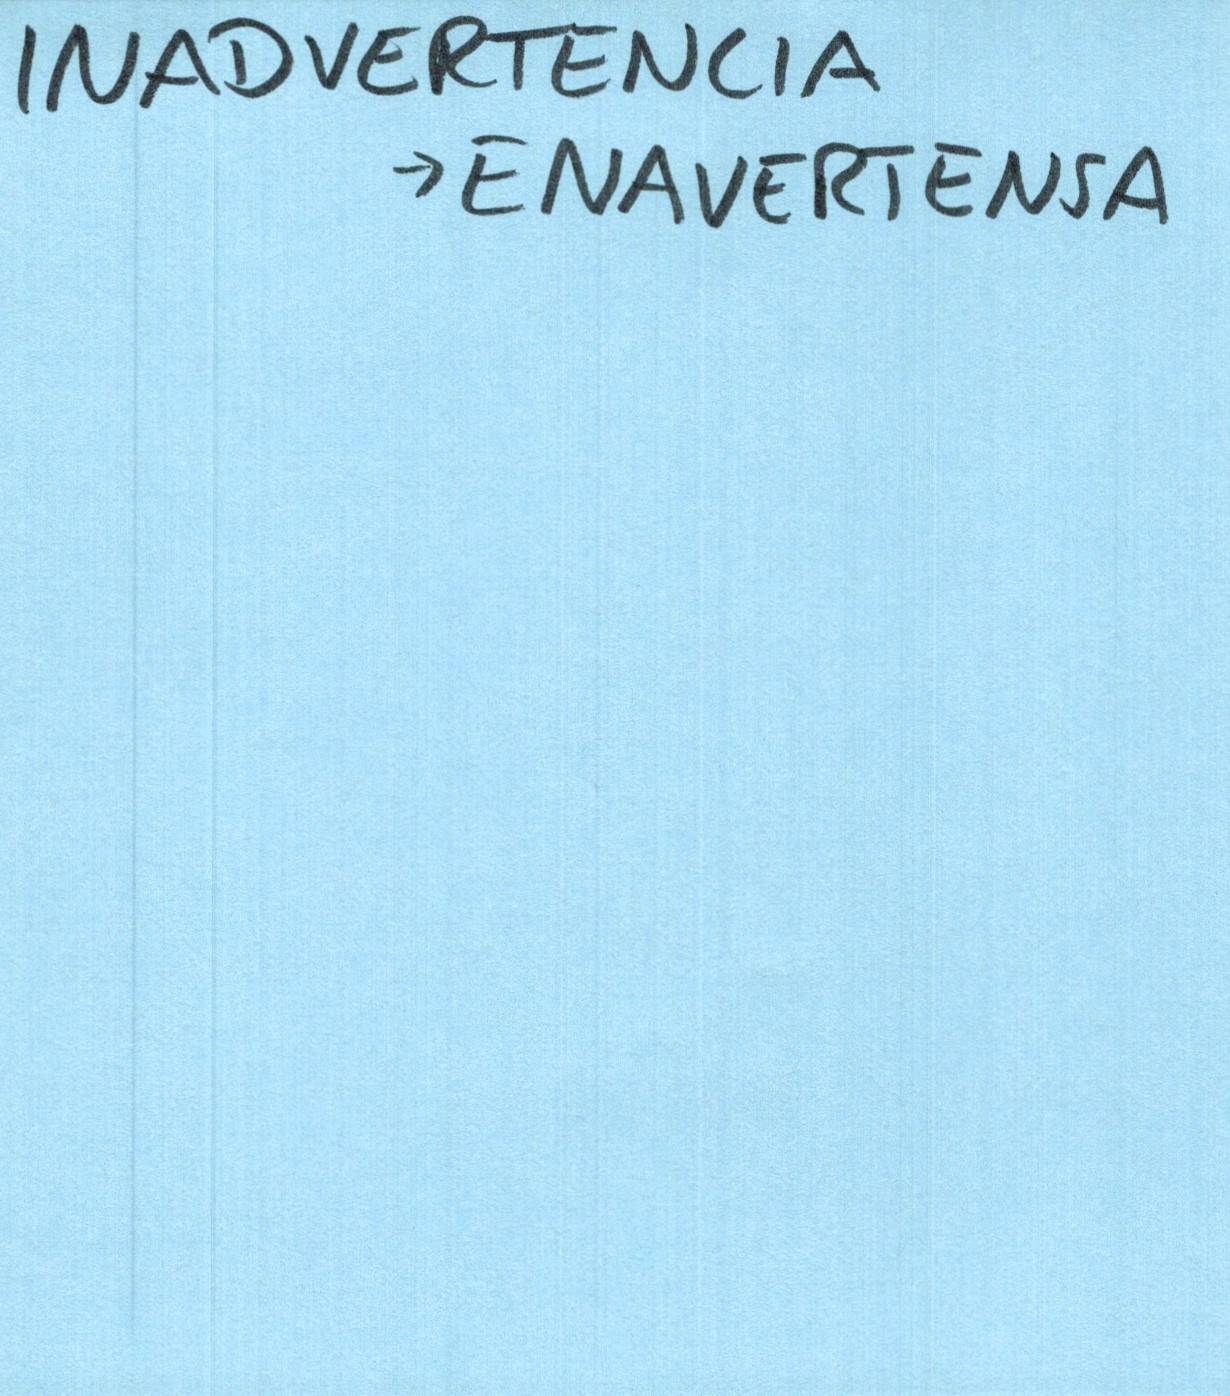 INADVERTENCIA
→ ENAVERTENSA